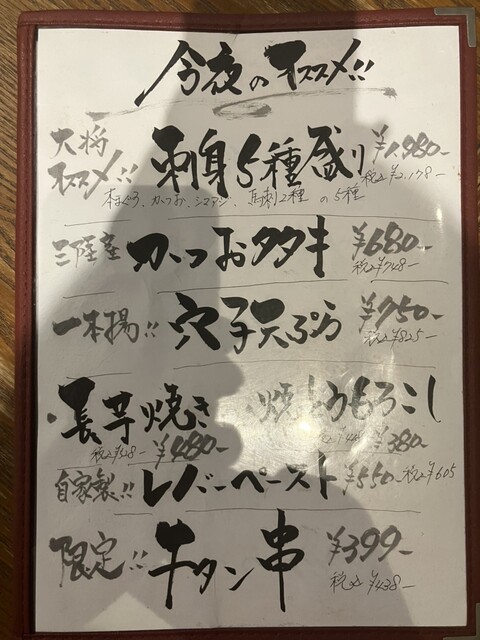 今夜のオススメ!!
大将オススメ!! 刺身5種盛り ¥1,980-
税込¥2,178-
本まぐろ、かつお、シマアジ、馬刺2種の5種
三陸産 かつおタタキ ¥680-
税込¥748-
一本揚!! 穴子天ぷら ¥750-
税込¥825-
・長芋焼き ・焼とうもろこし
税込¥528- ¥480- ¥380-
自家製!! レバーペースト ¥550- 税込¥605
限定!! 牛タン串 ¥399-
税込¥438-